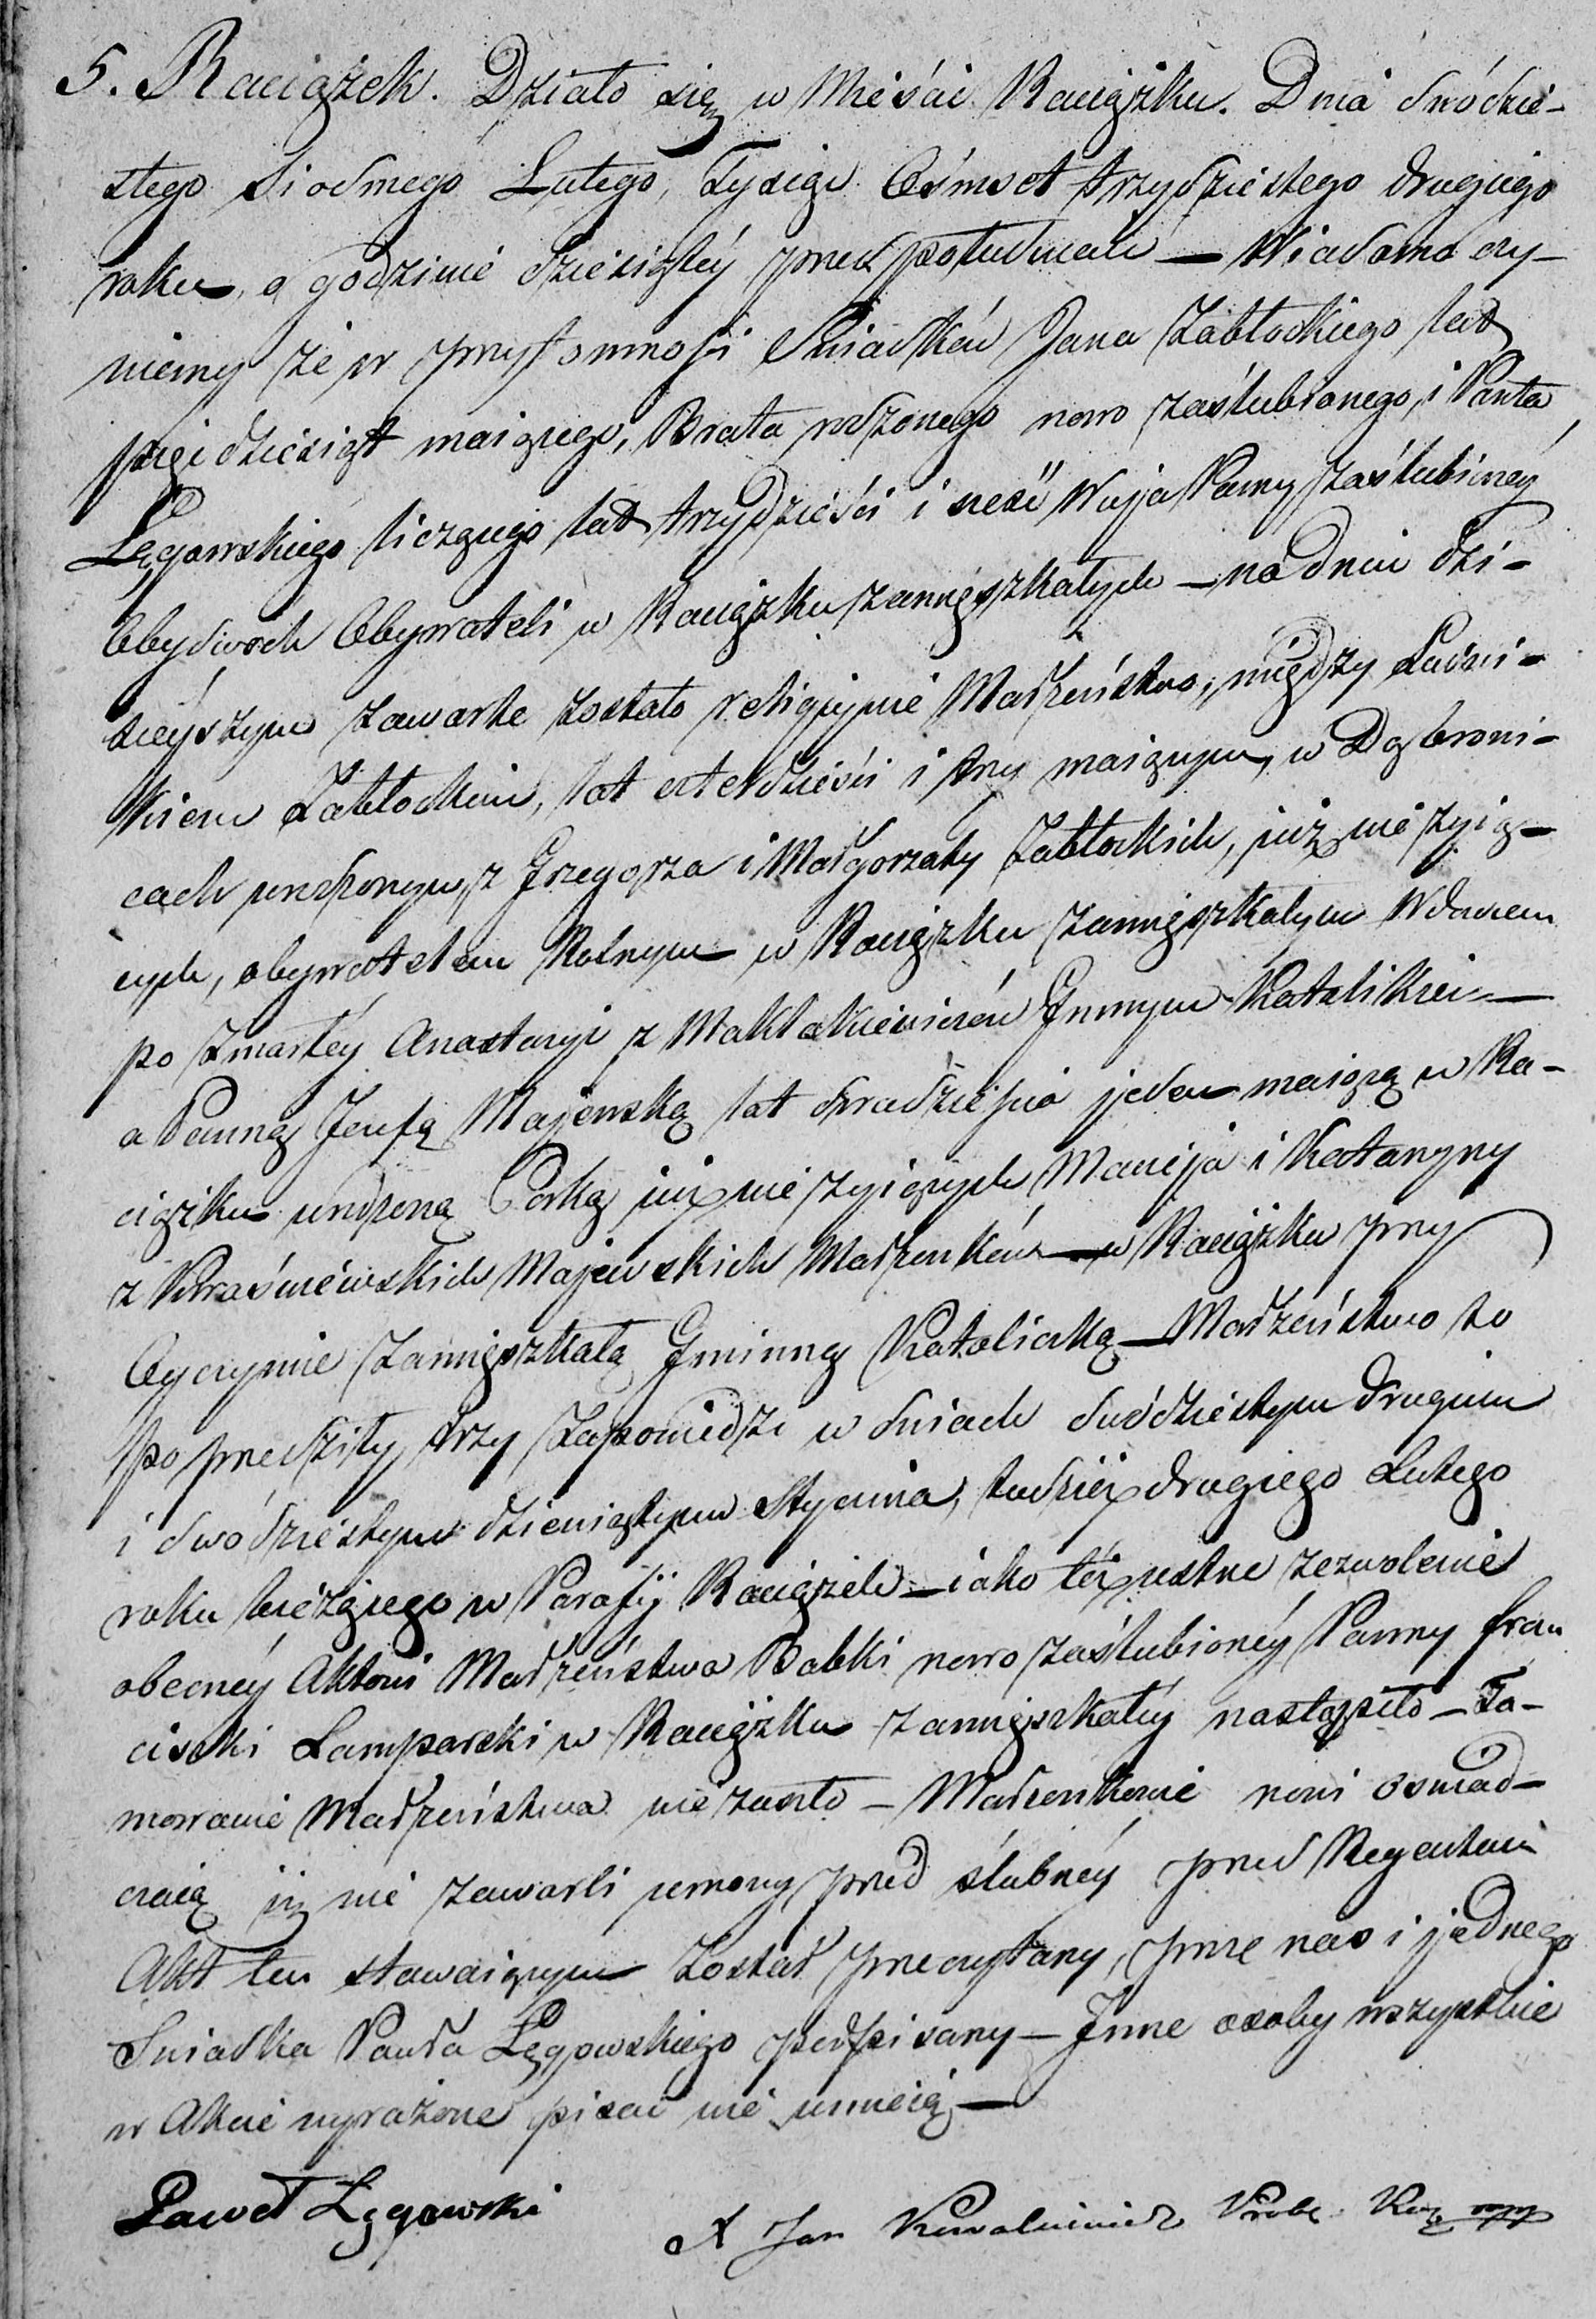 5. Raciążek. Działo się w Mieście Raciążku. Dnia dwódzie-
stego Siodmego Lutego, Tysiąc Ośmset trzydziestego drugiego
roku, o godzinie dziesiątéy przed południem — Wiadomo czy-
niemy że w przytomności Swiadków Jana Zabłockiego lat
pięćdziesiąt maiącego, Brata rodzonego nowo zaślubionego, i Pawła
Łęgowskiego liczącego lat trzydzieści i sześć Wuja Panny zaślubionéy
Obydwoch Obywateli w Raciążku zamięszkałych — na dniu dzi-
sieyszym zawarte zostało religijne Małżeństwo, między Ludwi-
kiem Zabłockim, lat czterdzieści i trzy maiącym, w Dąbrowi-
cach urodzonym, z Grzegorza i Małgorzaty Zabłockich, już nie żyią-
cych, obywatelem Rolnym w Raciążku zamięszkałym Wdowcem
po zmarłéy Anastazyi z Makłakiewiczów Gmnym Katolikiem —
a Panną Józefą Majewską lat dwadzieścia jeden maiącą w Ra-
ciążku urodzoną Corką już nie żyiących Macieja i Katarzyny
z Kwaśniewskich Majewskich Małżonków — w Raciążku przy
Oyczymie zamięszkałą Gminną Katoliczką — Małżeństwo to
poprzedziły trzy Zapowiedzi w dniach dwódziestym drugim
i dwódziestym dziewiątym Stycznia, tudzież drugiego Lutego
roku bieżącego w Parafij Raciążek — iako też ustne zezwolenie
obecnéy Aktowi Małżeństwa Babki nowo zaślubionéy Panny Fran
ciszki Lamparski w Raciążku zamięszkałéy nastąpiło — Ta-
mowanie Małżeństwa nie zaszło — Małżonkowie nowi oświad-
czaią iż nie zawarli umowy przed ślubnéy przed Regentem
Akt ten stawaiącym został przeczytany, przez nas i jednego
Swiadka Pawła Łęgowskiego podpisany — Inne osoby wszystkie
w Akcie wyrażone pisać nie umieią —
Paweł Łęgowski
X Jan Prob.